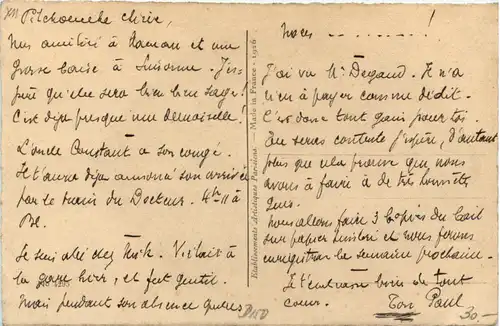 chérie,
Mes amitiés à Maman et une
grosse baise à Suzanne. J'es-
père qu'elle sera bien bien sage!
C'est déjà presque une demoiselle!
L'oncle Constant a son congé.
Je t'aurai déjà annoncé son arrivée
par le train du Docteur. 4h 11 à
Je suis allé chez Mick. Il était à
la gare hier, et fort gentil.
Mais pendant son absence
Made in France - 1926
Etablissements Artistiques Parisiens
noces --------!
J'ai vu Mr Degand. Il n'a
rien à payer comme dédit.
C'est donc tout gain pour toi.
Tu seras contente j'espère, d'autant
plus que cela prouve que nous
avons à faire à de très honnêtes
gens.
Nous allons faire 3 copies du bail
sur papier ministre et nous ferons
enregistrer la semaine prochaine.
Je t'embrasse bien de tout
coeur. Ton Paul
30.-